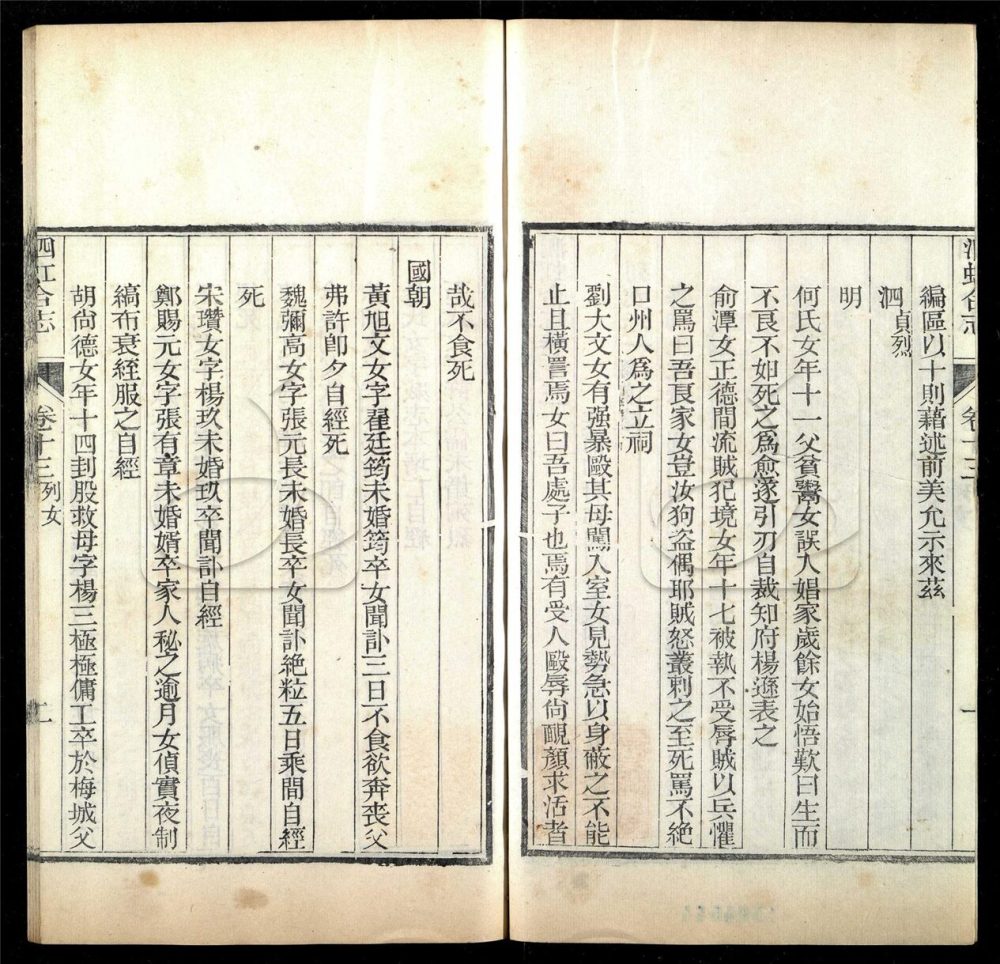 泗虹合志
卷十三
一
編區以十則藉述前美允示來茲
泗貞烈
明
何氏女年十一父貧鬻女誤入娼家歲餘女始悟歎曰生而
不良不如死之爲愈遂引刃自裁知府楊遜表之
俞潭女正德間流賊犯境女年十七被執不受辱賊以兵懼
之罵曰吾良家女豈汝狗盜偶耶賊怒叢刺之至死罵不絶
口州人爲之立祠
劉大文女有强暴毆其母闖入室女見勢急以身蔽之不能
止且橫詈焉女曰吾處子也焉有受人毆辱尙靦顏求活者
哉不食死
國朝
黃旭文女字翟廷筠未婚筠卒女聞訃三日不食欲奔喪父
弗許卽夕自經死
魏彌高女字張元長未婚長卒女聞訃絶粒五日乘間自經
死
宋瓚女字楊玖未婚玖卒聞訃自經
鄭賜元女字張有章未婚婿卒家人秘之逾月女偵實夜制
縞布衰絰服之自經
胡尙德女年十四刲股救母字楊三極極傭工卒於梅城父
泗虹合志
卷十三 列女
二